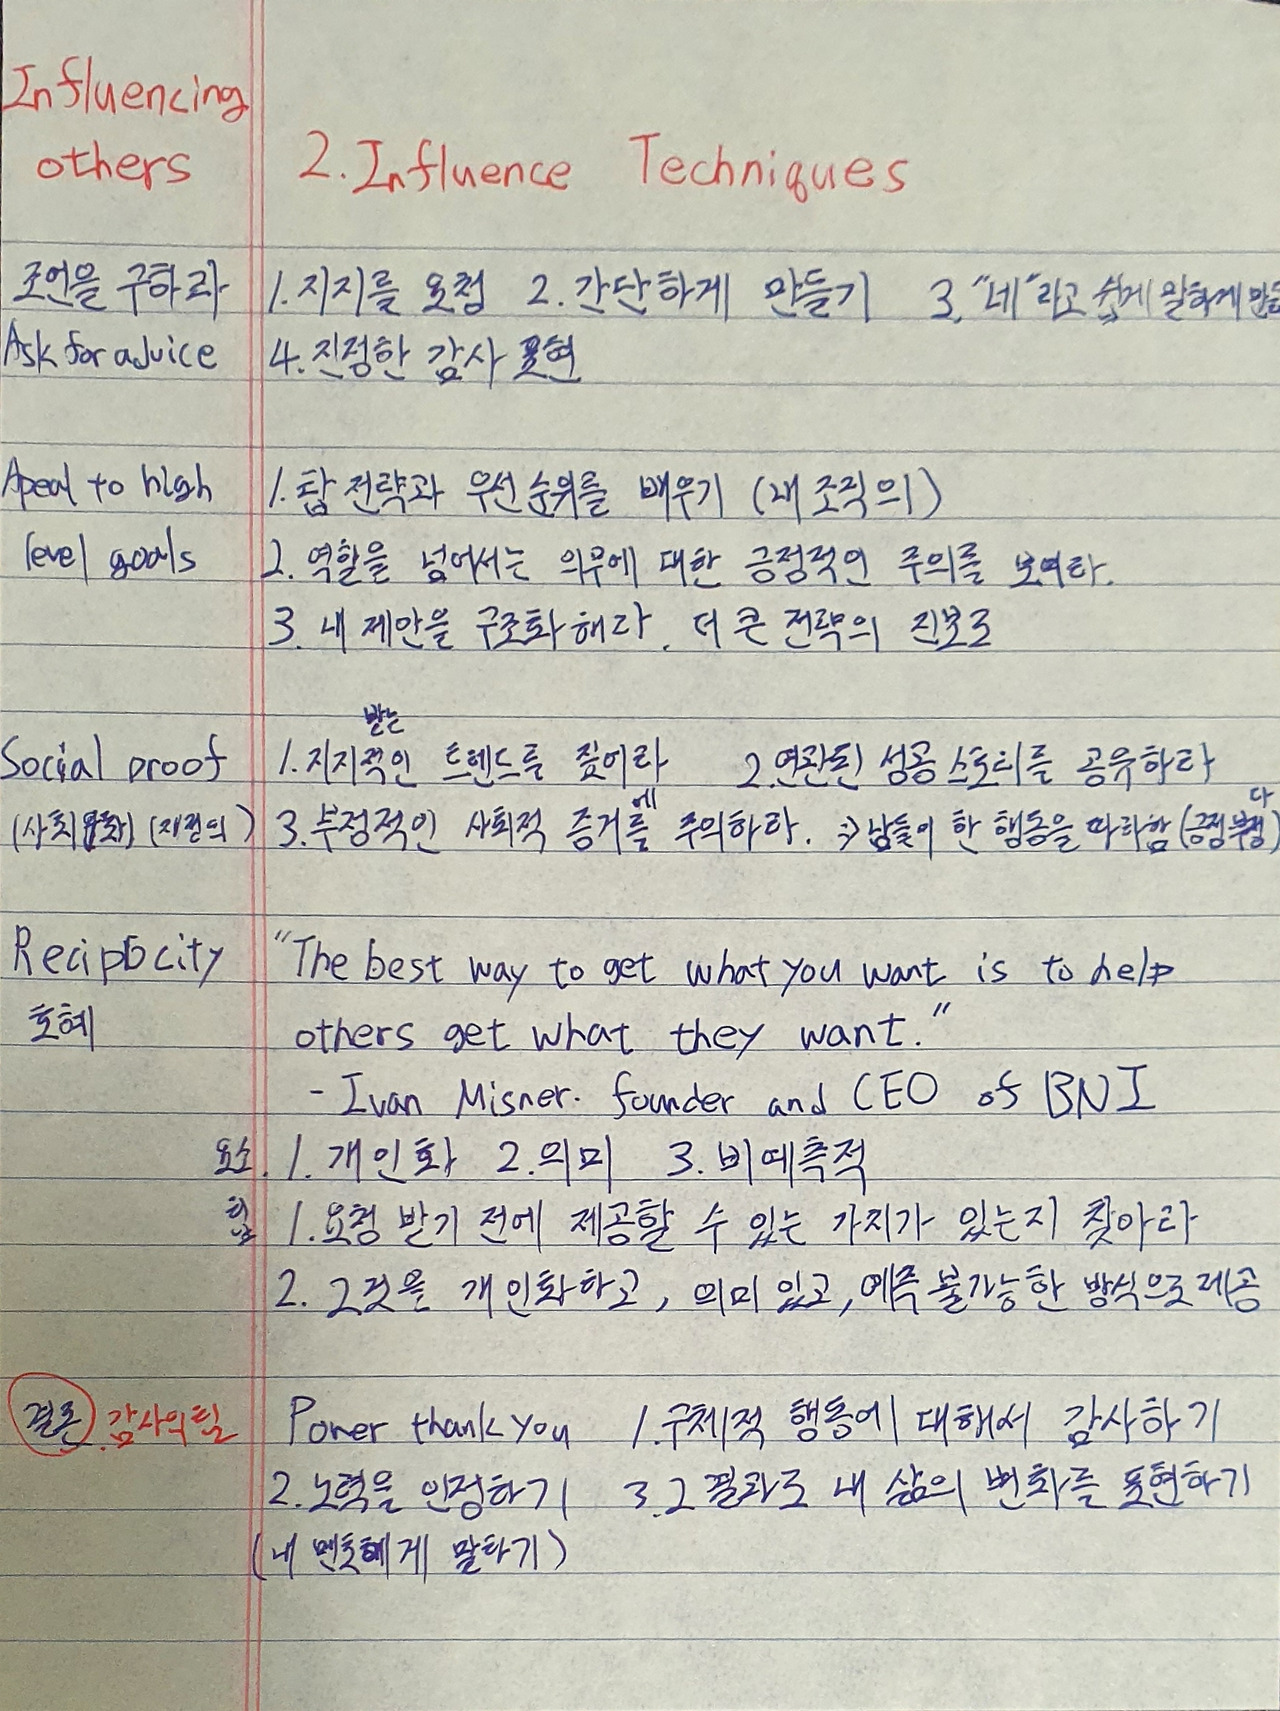 Influencing
others
2. Influence Techniques
조언을 구하라 1. 지지를 요청 2. 간단하게 만들기 3. "네"라고 쉽게 말하게 만들
Ask for advice 4. 진정한 감사 표현
Apeal to high 1. 탑 전략과 우선순위를 배우기 (내 조직의)
level goals 2. 역할을 넘어서는 의무에 대한 긍정적인 주의를 보여라.
3. 내 제안을 구조화해라. 더 큰 전략의 진보로
받는
Social proof 1. 지지적인 트렌드를 짚어라 2. 연관된 성공 스토리를 공유하라
에 다
(사회 ) (지전의) 3. 부정적인 사회적 증거를 주의하라. => 남들이 한 행동을 따라함 (긍정부정)
Reciprocity "The best way to get what you want is to help
호혜 others get what they want."
- Ivan Misner. founder and CEO of BNI
요소. 1. 개인화 2. 의미 3. 비예측적
팁 1. 요청 받기 전에 제공할 수 있는 가치가 있는지 찾아라
2. 그것을 개인화하고, 의미 있고, 예측 불가능한 방식으로 제공
결론. 감사의 팁 Power thank you 1. 구체적 행동에 대해서 감사하기
2. 노력을 인정하기 3. 그 결과로 내 삶의 변화를 표현하기
(내 멘토에게 말하기)